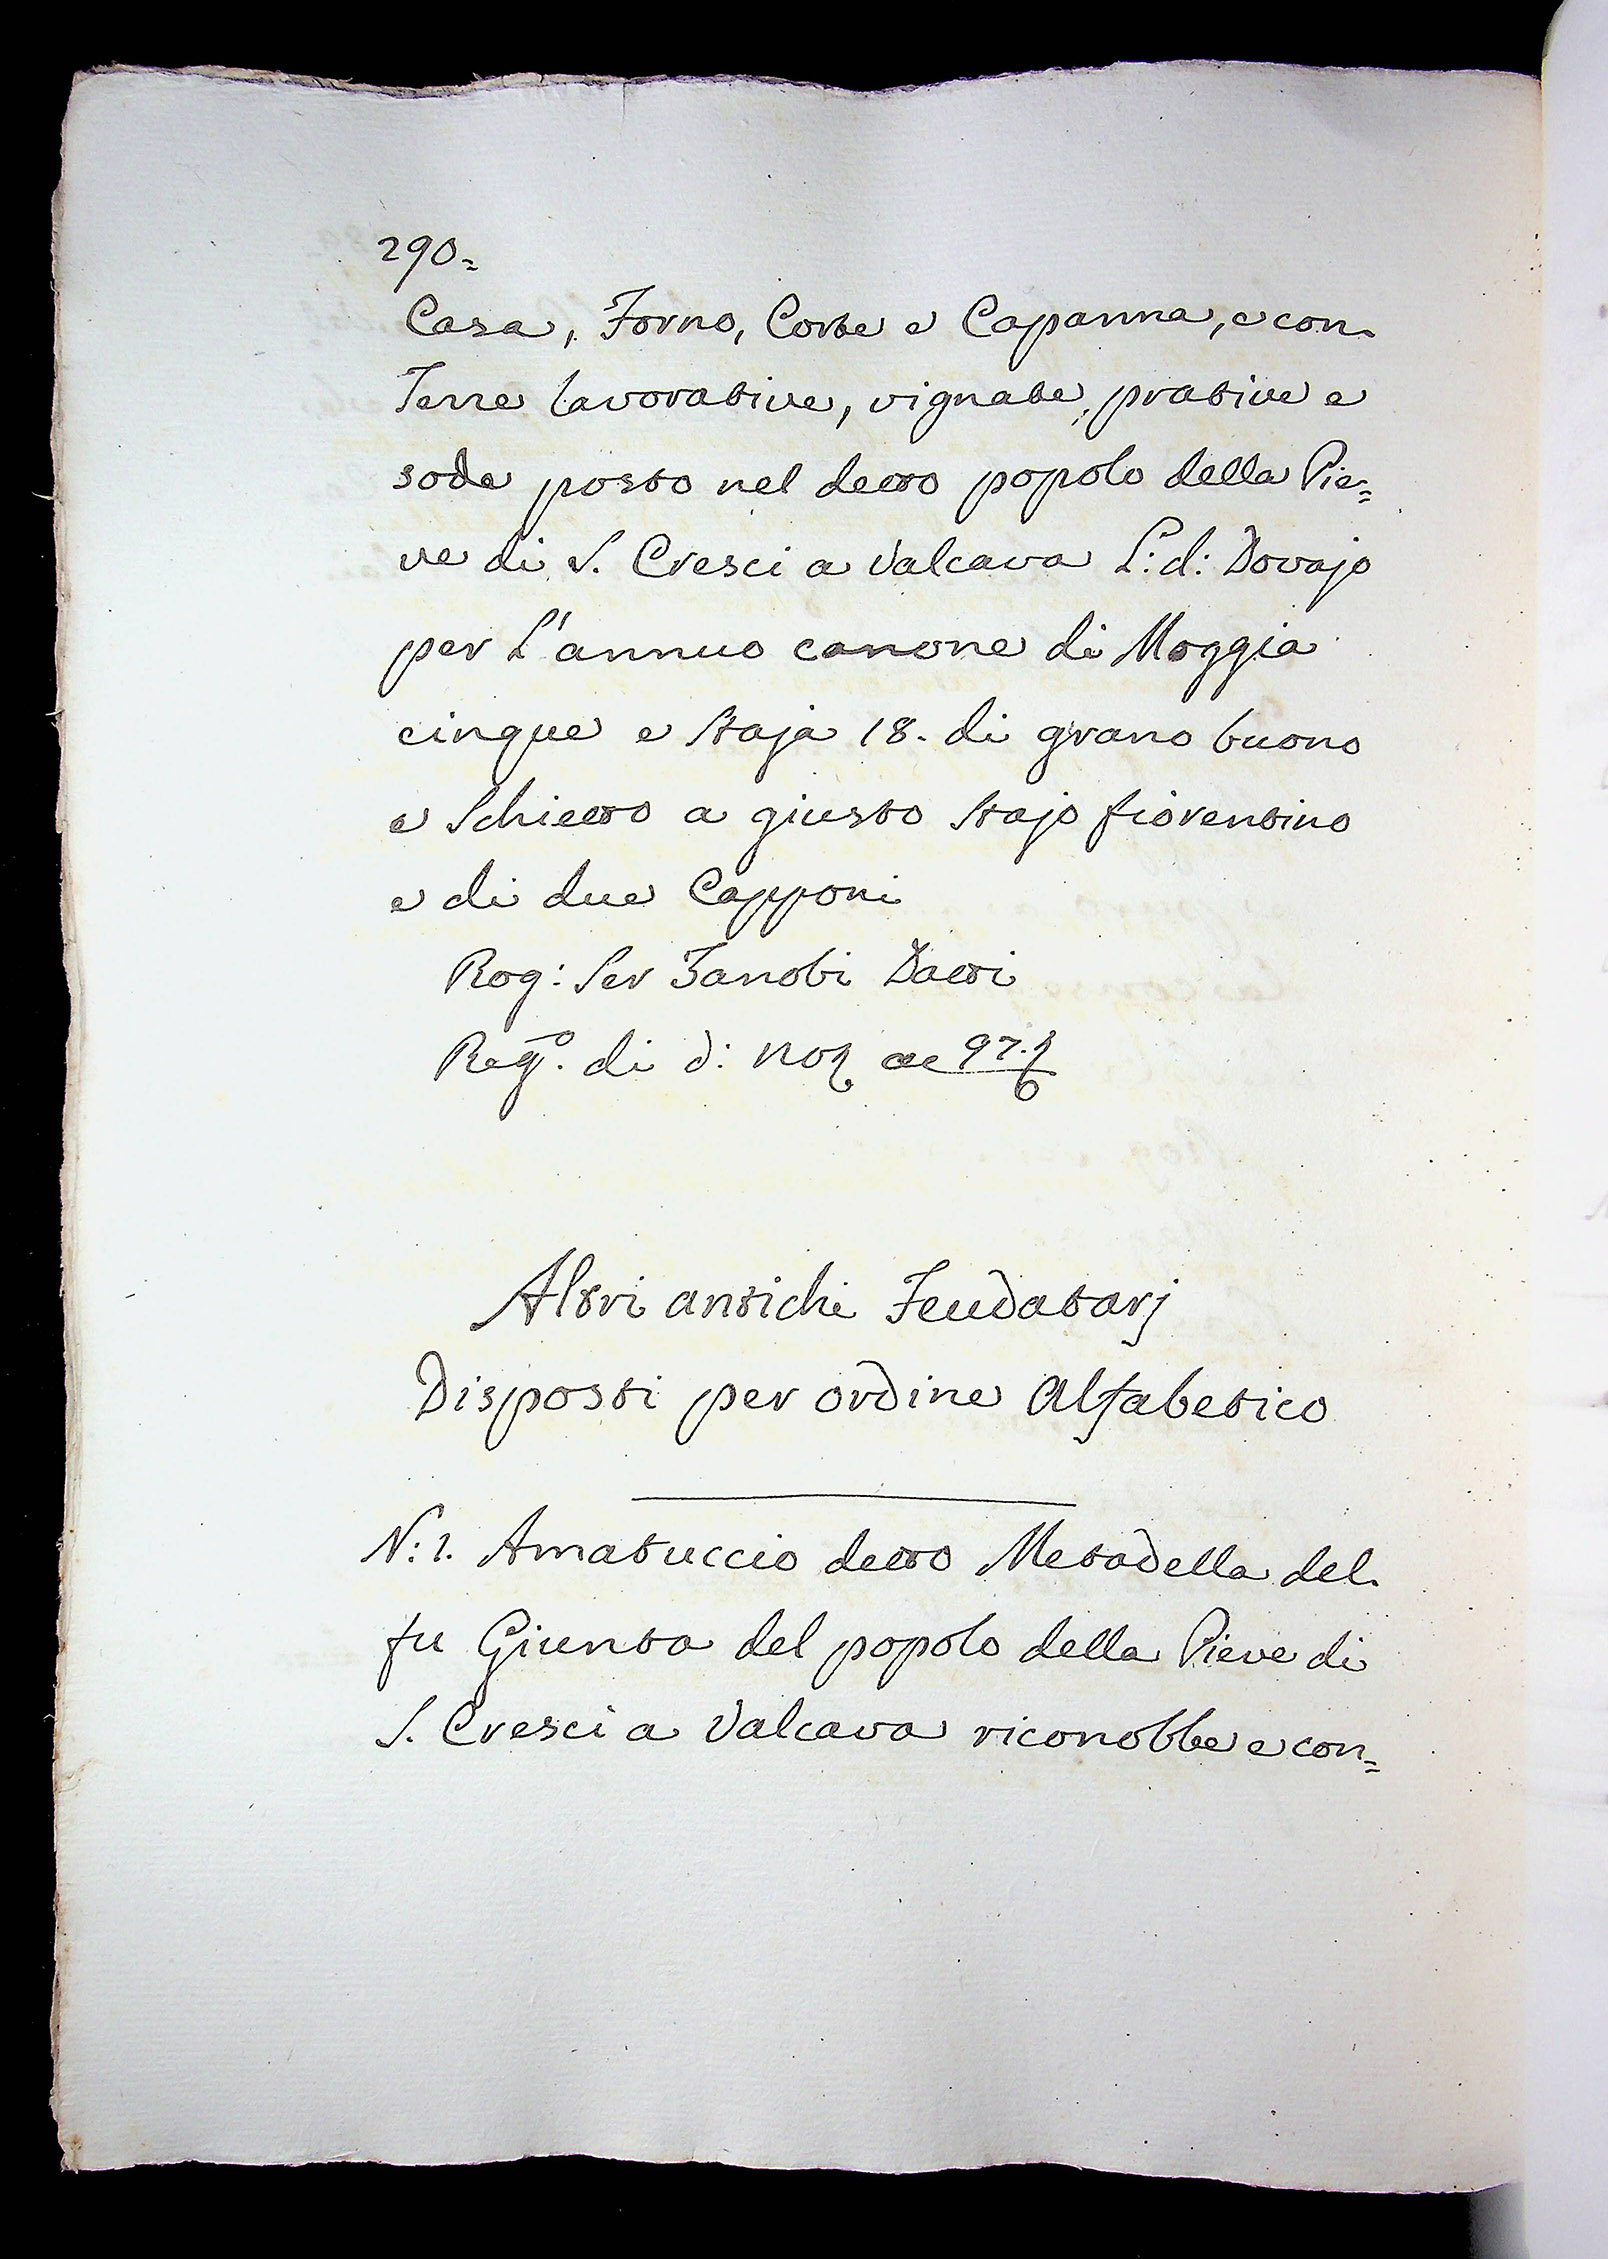 290=
Casa, Forno, Corte e Capanna, e con
Terre lavorative, vignate, prative e
sode posto nel detto popolo della Pie=
ve di S. Cresci a Valcava L: d: Dovajo
per L'annuo canone di Moggia
cinque e Staja 18. di grano buono
e Schietto a giusto Stajo fiorentino
e di due Capponi
Rog: Ser Zanobi Datti
Reg.º di d: ac 97.
Altri antichi Feudatarj
Disposti per ordine Alfabetico
N: 1. Amatuccio detto Metadella del
fu Giunta del popolo della Pieve di
S. Cresci a Valcava riconobbe e con=